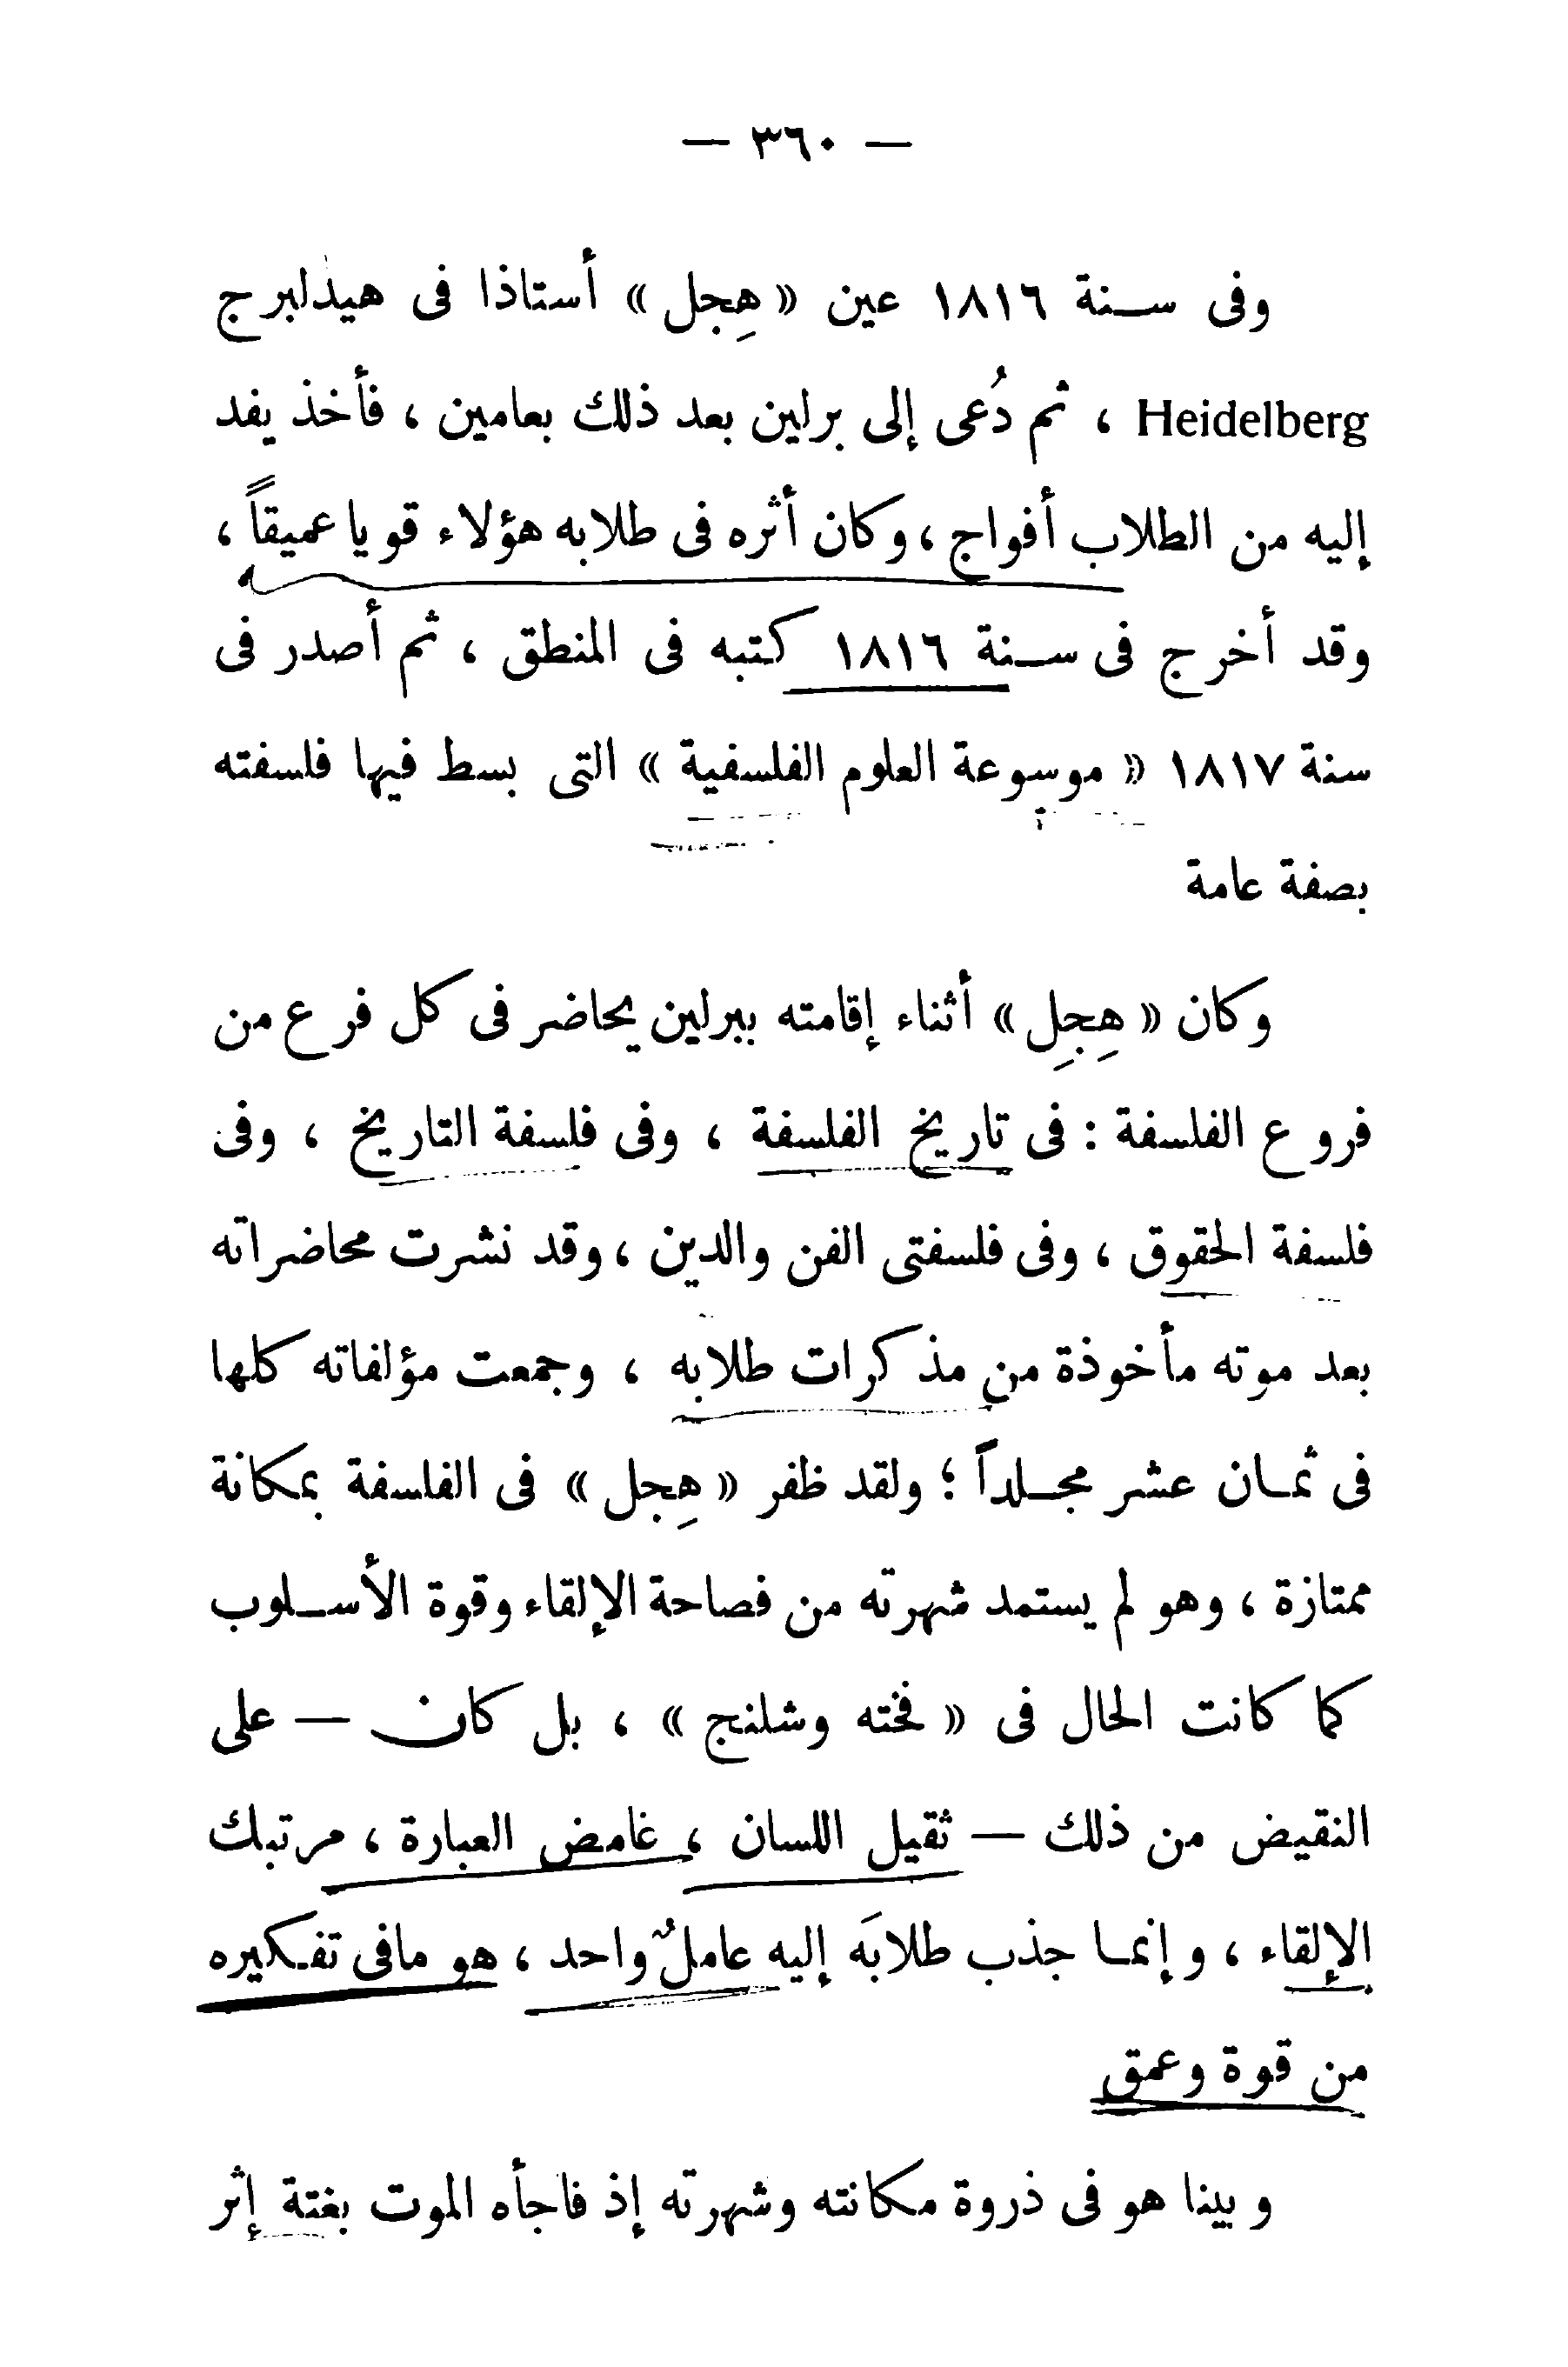 — ٣٦٠ —
وفى سنة ١٨١٦ عين « هِجل » أستاذا فى هيدلبرج
Heidelberg ، ثم دُعى إلى برلين بعد ذلك بعامين ، فأخذ يفد
إليه من الطلاب أفواج ، وكان أثره فى طلابه هؤلاء قويا عميقاً ،
وقد أخرج فى سنة ١٨١٦ كتبه فى المنطق ، ثم أصدر فى
سنة ١٨١٧ « موسوعة العلوم الفلسفية » التى بسط فيها فلسفته
بصفة عامة
وكان « هِجِل » أثناء إقامته ببرلين يحاضر فى كل فرع من
فروع الفلسفة : فى تاريخ الفلسفة ، وفى فلسفة التاريخ ، وفى
فلسفة الحقوق ، وفى فلسفتى الفن والدين ، وقد نشرت محاضراته
بعد موته مأخوذة من مذكرات طلابه ، وجمعت مؤلفاته كلها
فى ثمان عشر مجلداً ؛ ولقد ظفر « هِجل » فى الفلسفة بمكانة
ممتازة ، وهو لم يستمد شهرته من فصاحة الإلقاء وقوة الأسلوب
كما كانت الحال فى « فخته وشلنج » ، بل كان — على
النقيض من ذلك — ثقيل اللسان ، غامض العبارة ، مرتبك
الإلقاء ، وإنما جذب طلابَه إليه عاملٌ واحد ، هو مافى تفكيره
من قوة وعمق
وبينا هو فى ذروة مكانته وشهرته إذ فاجأه الموت بغتة إثر